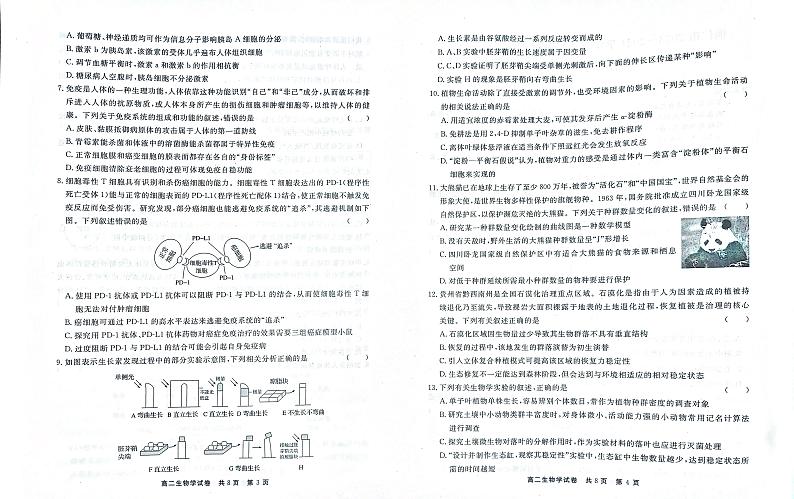 A. 葡萄糖、神经递质均可作为信息分子影响胰岛 A 细胞的分泌
B. 激素 b 为胰岛素,该激素的受体几乎遍布人体组织细胞
C. 调节血糖平衡时,激素 a 和激素 b 的作用相抗衡
D. 糖尿病人空腹时,胰岛细胞不分泌激素
7. 免疫是人体的一种生理功能,人体依靠这种功能识别“自己”和“非己”成分,从而破坏和排
斥进入人体的抗原物质,或人体本身所产生的损伤细胞和肿瘤细胞等,以维持人体的健
康。下列关于免疫系统的组成和功能的叙述,错误的是 ( )
A. 皮肤、黏膜抵御病原体的攻击属于人体的第一道防线
B. 青霉素能杀菌和体液中的溶菌酶能杀菌都属于特异性免疫
C. 正常细胞膜和癌变细胞的膜表面都存在各自的“身份标签”
D. 免疫细胞清除衰老细胞的过程可体现免疫自稳功能
8. 细胞毒性 T 细胞具有识别和杀伤癌细胞的能力。细胞毒性 T 细胞表达出的 PD-1(程序性
死亡受体 1)能与正常的细胞表面的 PD-L1(程序性死亡配体 1)结合,使正常细胞不触发免
疫反应而免受伤害。研究发现,部分癌细胞也能逃避免疫系统的“追杀”,其逃避机制如下
图。下列叙述错误的是 ( )
PD-L1
正常细胞
癌细胞
逃避“追杀”
细胞毒性T细胞
PD-1
PD-1
A. 使用 PD-1 抗体或 PD-L1 抗体可以阻断 PD-1 与 PD-L1 的结合,从而使细胞毒性 T 细
胞无法对付肿瘤细胞
B. 癌细胞可通过 PD-L1 的高水平表达来逃避免疫系统的“追杀”
C. 探究用 PD-1 抗体、PD-L1 抗体药物对癌症免疫治疗的效果需要三组癌症模型小鼠
D. 过度阻断 PD-1 与 PD-L1 的结合可能会引起自身免疫病
9. 如图表示生长素发现过程中的部分实验示意图,下列相关分析正确的是 ( )
单侧光
A 弯曲生长 B 直立生长 C 直立生长 D 弯曲生长 E 不生长不弯曲
胚芽鞘
尖端
F 直立生长 G 弯曲生长 H
高二生物学试卷 共 8 页 第 3 页
A. 生长素是由谷氨酸经过一系列反应转变而成的
B. A、B 实验中胚芽鞘的生长速度属于因变量
C. C、D 实验证明了胚芽鞘尖端受单侧光刺激后,向下面的伸长区传递某种“影响”
D. 实验 H 的现象是胚芽鞘向右弯曲生长
10. 植物生命活动除了直接受激素的调节外,也受环境因素的影响。下列关于植物生命活动
的相关说法正确的是 ( )
A. 用适宜浓度的赤霉素处理大麦,可使其发芽后产生 α-淀粉酶
B. 免耕法是用 2,4-D 抑制单子叶杂草的滋生,免去耕作程序
C. 离体叶绿体悬浮液在适当条件下照远红光会发生放氧反应
D. “淀粉—平衡石假说”认为,植物对重力的感受是通过体内一类富含“淀粉体”的平衡石
细胞来实现的
11. 大熊猫已在地球上生存了至少 800 万年,被誉为“活化石”和“中国国宝”,世界自然基金会的
形象大使,是世界生物多样性保护的旗舰物种。1963 年,国务院批准成立四川卧龙国家级
自然保护区,以保护濒危灭绝的大熊猫。下列关于种群数量变化的叙述,错误的是 ( )
A. 研究某一种群数量变化绘制的曲线图是一种数学模型
B. 没有天敌时,野外生活的大熊猫种群数量呈“J”形增长
C. 四川卧龙国家级自然保护区中有适合大熊猫的食物来源和栖息
空间
D. 对低于种群延续所需最小种群数量的物种要进行保护
12. 贵州省黔西南州是全国石漠化治理重点区域。石漠化是指由于人为因素造成的植被持
续退化乃至流失,导致裸岩大面积裸露于地表的土地退化过程,恢复植被是治理的核心
关键。下列有关叙述正确的是 ( )
A. 石漠化区域因生物量过少导致其生物群落不具有垂直结构
B. 恢复的过程中,该地发生的群落演替为初生演替
C. 引入立体复合种植模式可提高该区域的恢复力稳定性
D. 生态修复不一定能达到森林阶段,但会达到与环境相适应的相对稳定状态
13. 下列有关生物学实验的叙述,正确的是 ( )
A. 单子叶植物单株生长,容易辨别个体数目,常作为植物种群密度的调查对象
B. 研究土壤中小动物类群丰富度时,对身体微小、活动能力强的小动物常用记名计算法
进行调查
C. 探究土壤微生物对落叶的分解作用时,作为实验材料的落叶也应进行灭菌处理
D. “设计并制作生态缸,观察其稳定性”实验中,生态缸中生物数量越少,达到稳定状态所
需的时间越短
高二生物学试卷 共 8 页 第 4 页